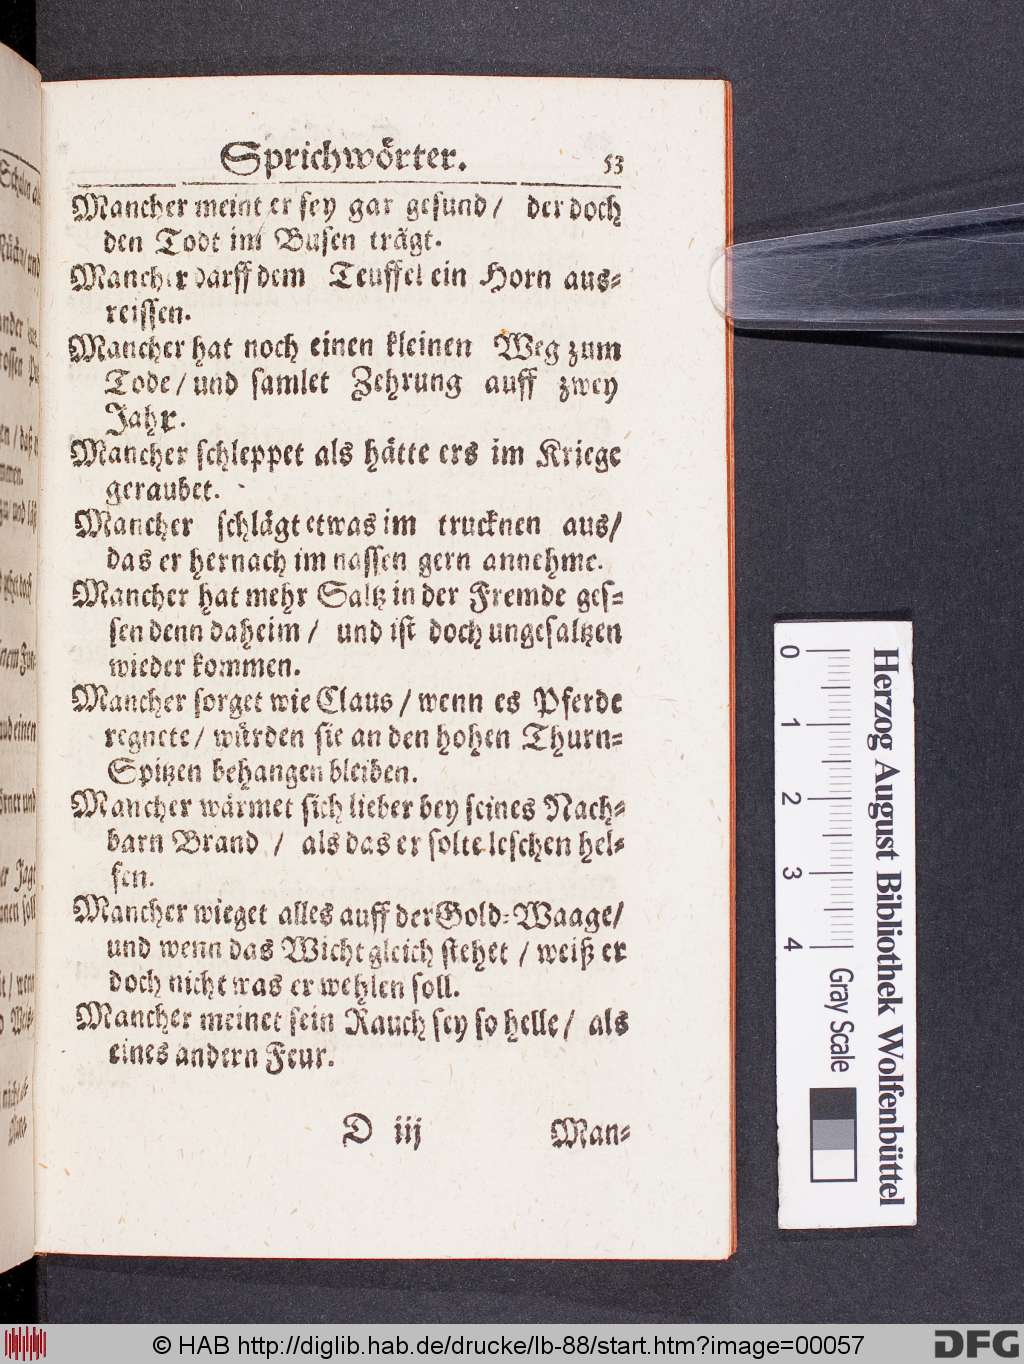 Sprichwörter. 53
Mancher meint er sey gar gesund / der doch
den Todt im Busen trägt.
Mancher darff dem Teuffel ein Horn aus-
reissen.
Mancher hat noch einen kleinen Weg zum
Tode / und samlet Zehrung auff zwey
Jahr.
Mancher schleppet als hätte ers im Kriege
geraubet.
Mancher schlägt etwas im trucknen aus /
das er hernach im nassen gern annehme.
Mancher hat mehr Saltz in der Fremde ges-
sen denn daheim / und ist doch ungesaltzen
wieder kommen.
Mancher sorget wie Claus / wenn es Pferde
regnete / würden sie an den hohen Thurn-
Spitzen behangen bleiben.
Mancher wärmet sich lieber bey seines Nach-
barn Brand / als das er solte leschen hel-
fen.
Mancher wieget alles auff der Gold-Waage /
und wenn das Wicht gleich stehet / weiß er
doch nicht was er wehlen soll.
Mancher meinet sein Rauch sey so helle / als
eines andern Feur.
D iij Man-
Herzog August Bibliothek Wolfenbüttel
0 1 2 3 4 Gray Scale
© HAB http://diglib.hab.de/drucke/lb-88/start.htm?image=00057
DFG